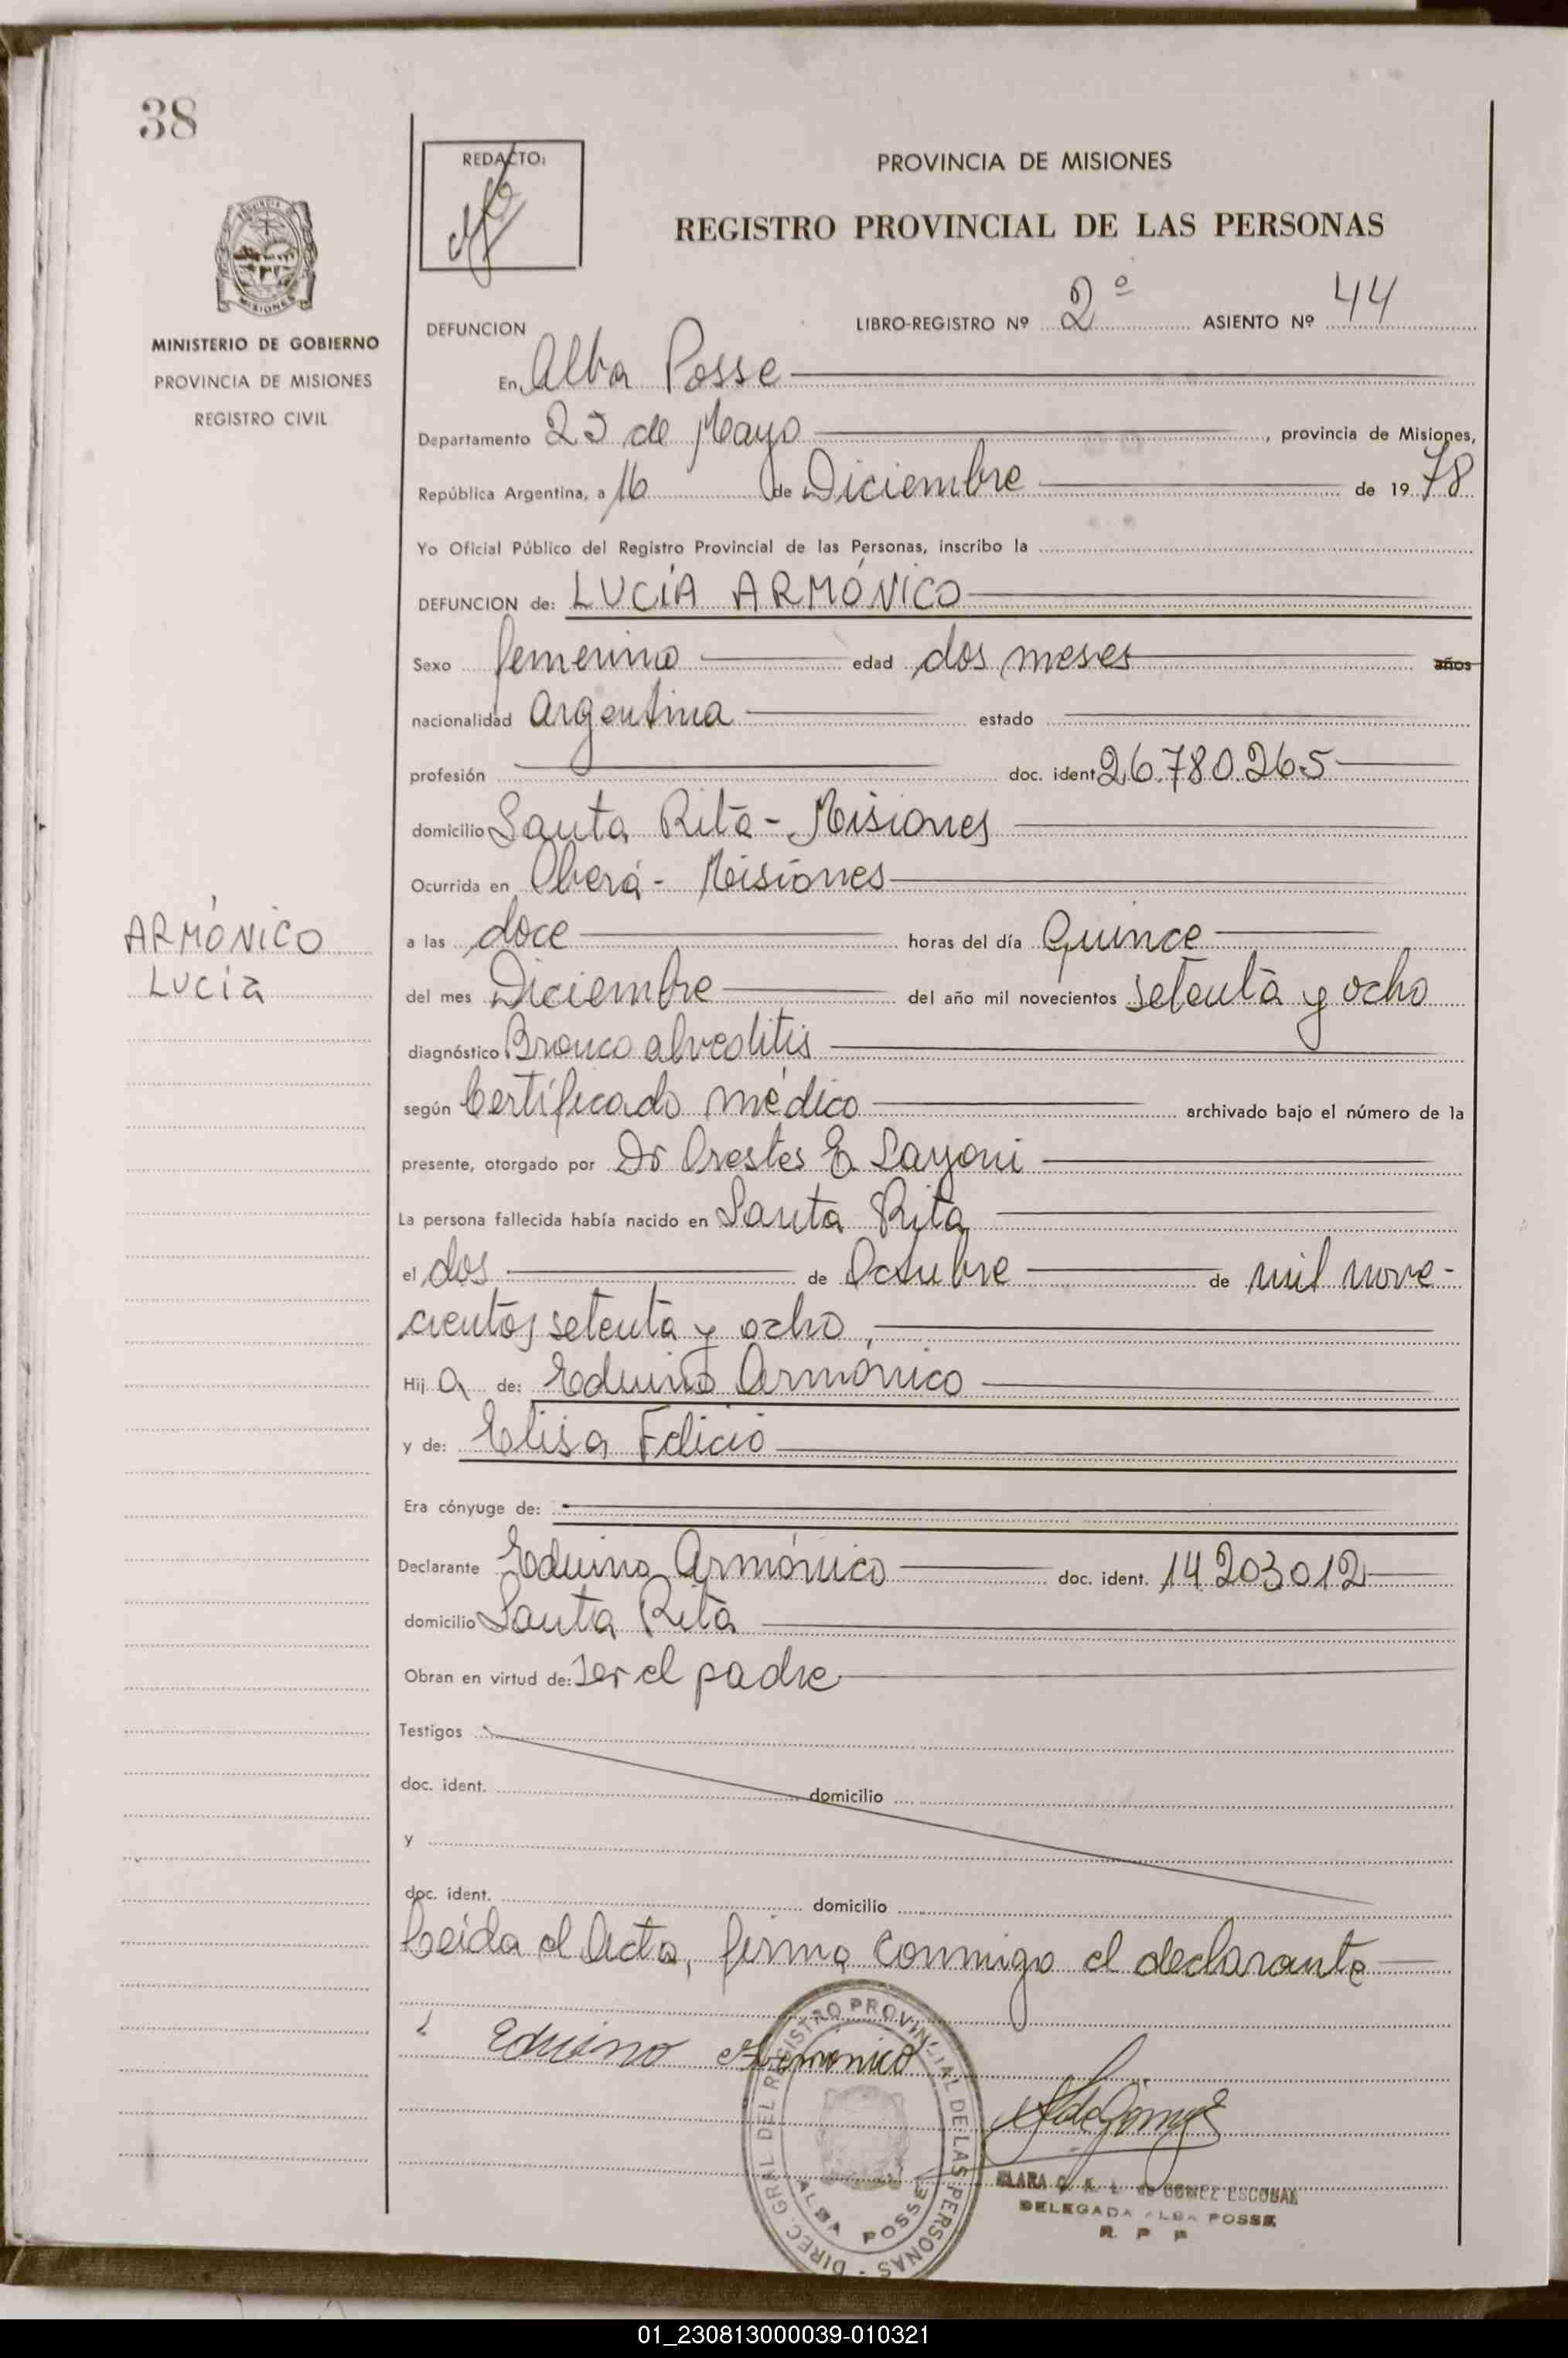 38
REDACTO:
PROVINCIA DE MISIONES
REGISTRO PROVINCIAL DE LAS PERSONAS
MISIONES
MINISTERIO DE GOBIERNO
PROVINCIA DE MISIONES
REGISTRO CIVIL
DEFUNCION
LIBRO-REGISTRO Nº 2º ASIENTO Nº 44
En Alba Posse
Departamento 25 de Mayo, provincia de Misiones,
República Argentina, a 16 de Diciembre de 1978
Yo Oficial Público del Registro Provincial de las Personas, inscribo la
DEFUNCION de: LUCÍA ARMÓNICO
Sexo femenino edad dos meses años
nacionalidad Argentina estado
profesión doc. ident. 26.780.265
domicilio Santa Rita - Misiones
Ocurrida en Oberá - Misiones
ARMÓNICO
Lucía
a las doce horas del día Quince
del mes Diciembre del año mil novecientos setenta y ocho
diagnóstico Bronco alveolitis
según Certificado médico archivado bajo el número de la
presente, otorgado por Dr Orestes E.
La persona fallecida había nacido en Santa Rita
el dos de Octubre de mil nove-
cientos setenta y ocho,
Hija de: Eduino Armónico
y de: Elisa Felicio
Era cónyuge de:
Declarante Eduino Armónico doc. ident. 14.203.012
domicilio Santa Rita
Obran en virtud de: ser el padre
Testigos
doc. ident. domicilio
y
doc. ident. domicilio
Leída el Acta, firma conmigo el declarante
Eduino Armonico
DIREC. GRAL DEL REGISTRO PROVINCIAL DE LAS PERSONAS
ALBA POSSE
CLARA de GOMEZ ESCOBAR
DELEGADA ALBA POSSE
R. P. P.
01_230813000039-010321